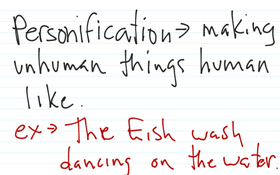 Personification→ making
unhuman things human
like.
ex→ The Eish wash
dancing on the water.